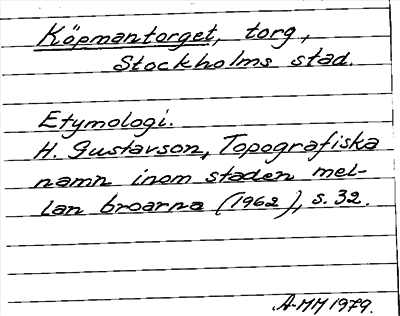 Köpmantorget, torg,
Stockholms stad.
Etymologi.
H. Gustavson, Topografiska
namn inom staden mel-
lan broarna (1962), s. 32.
A-MM 1979.